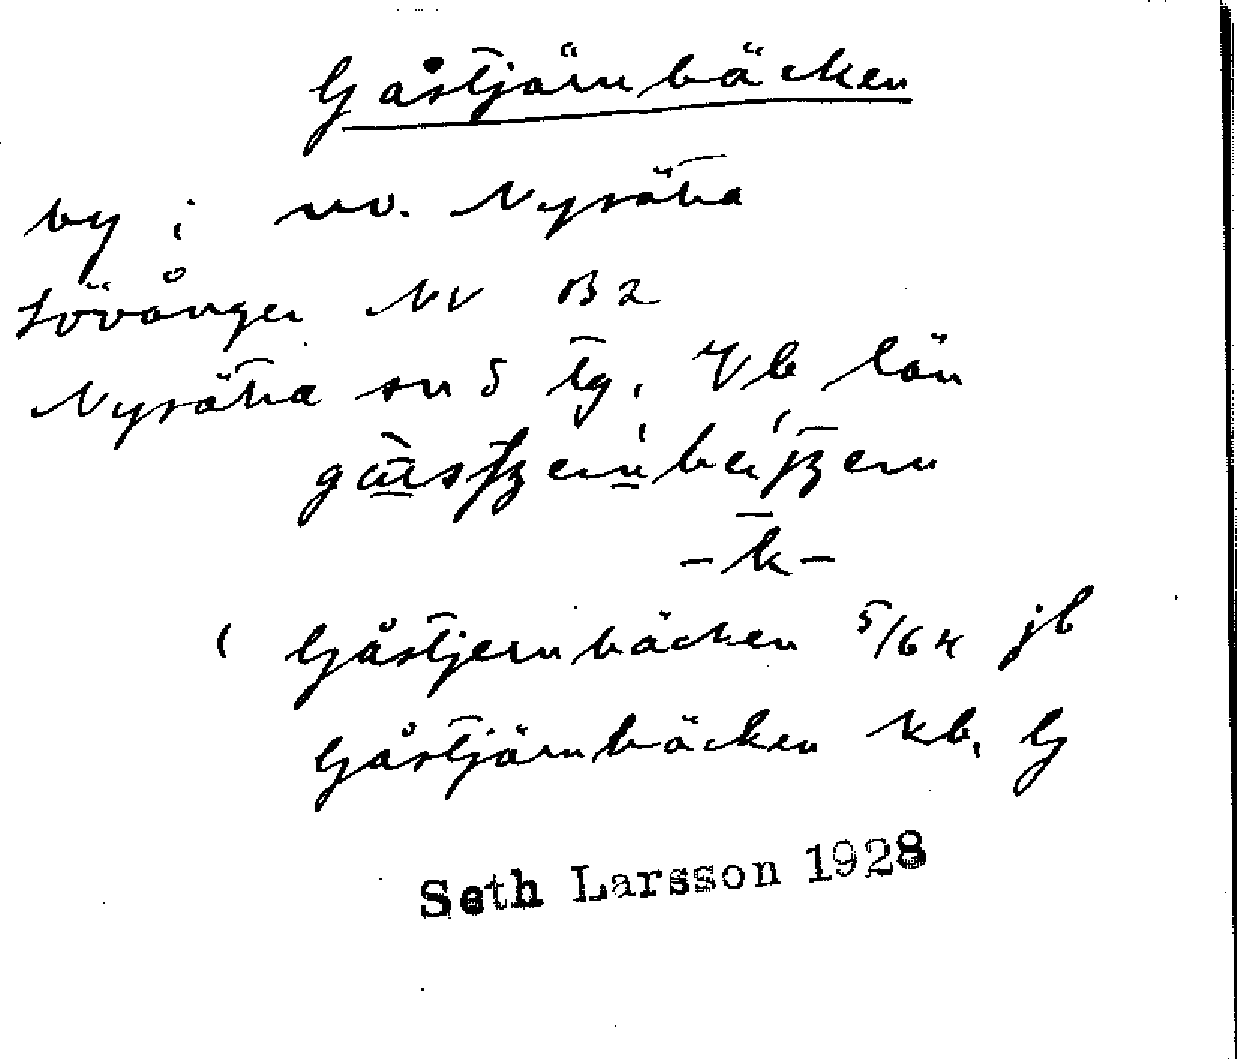 Gåstjärnbäcken
by i nv. Nysätra
Lövånger NV B2
Nysätra sn S tg. Vb län
-k-
Gåstjernbäcken 5/64 jb
Gåstjärnbäcken kb, G
Seth Larsson 1928